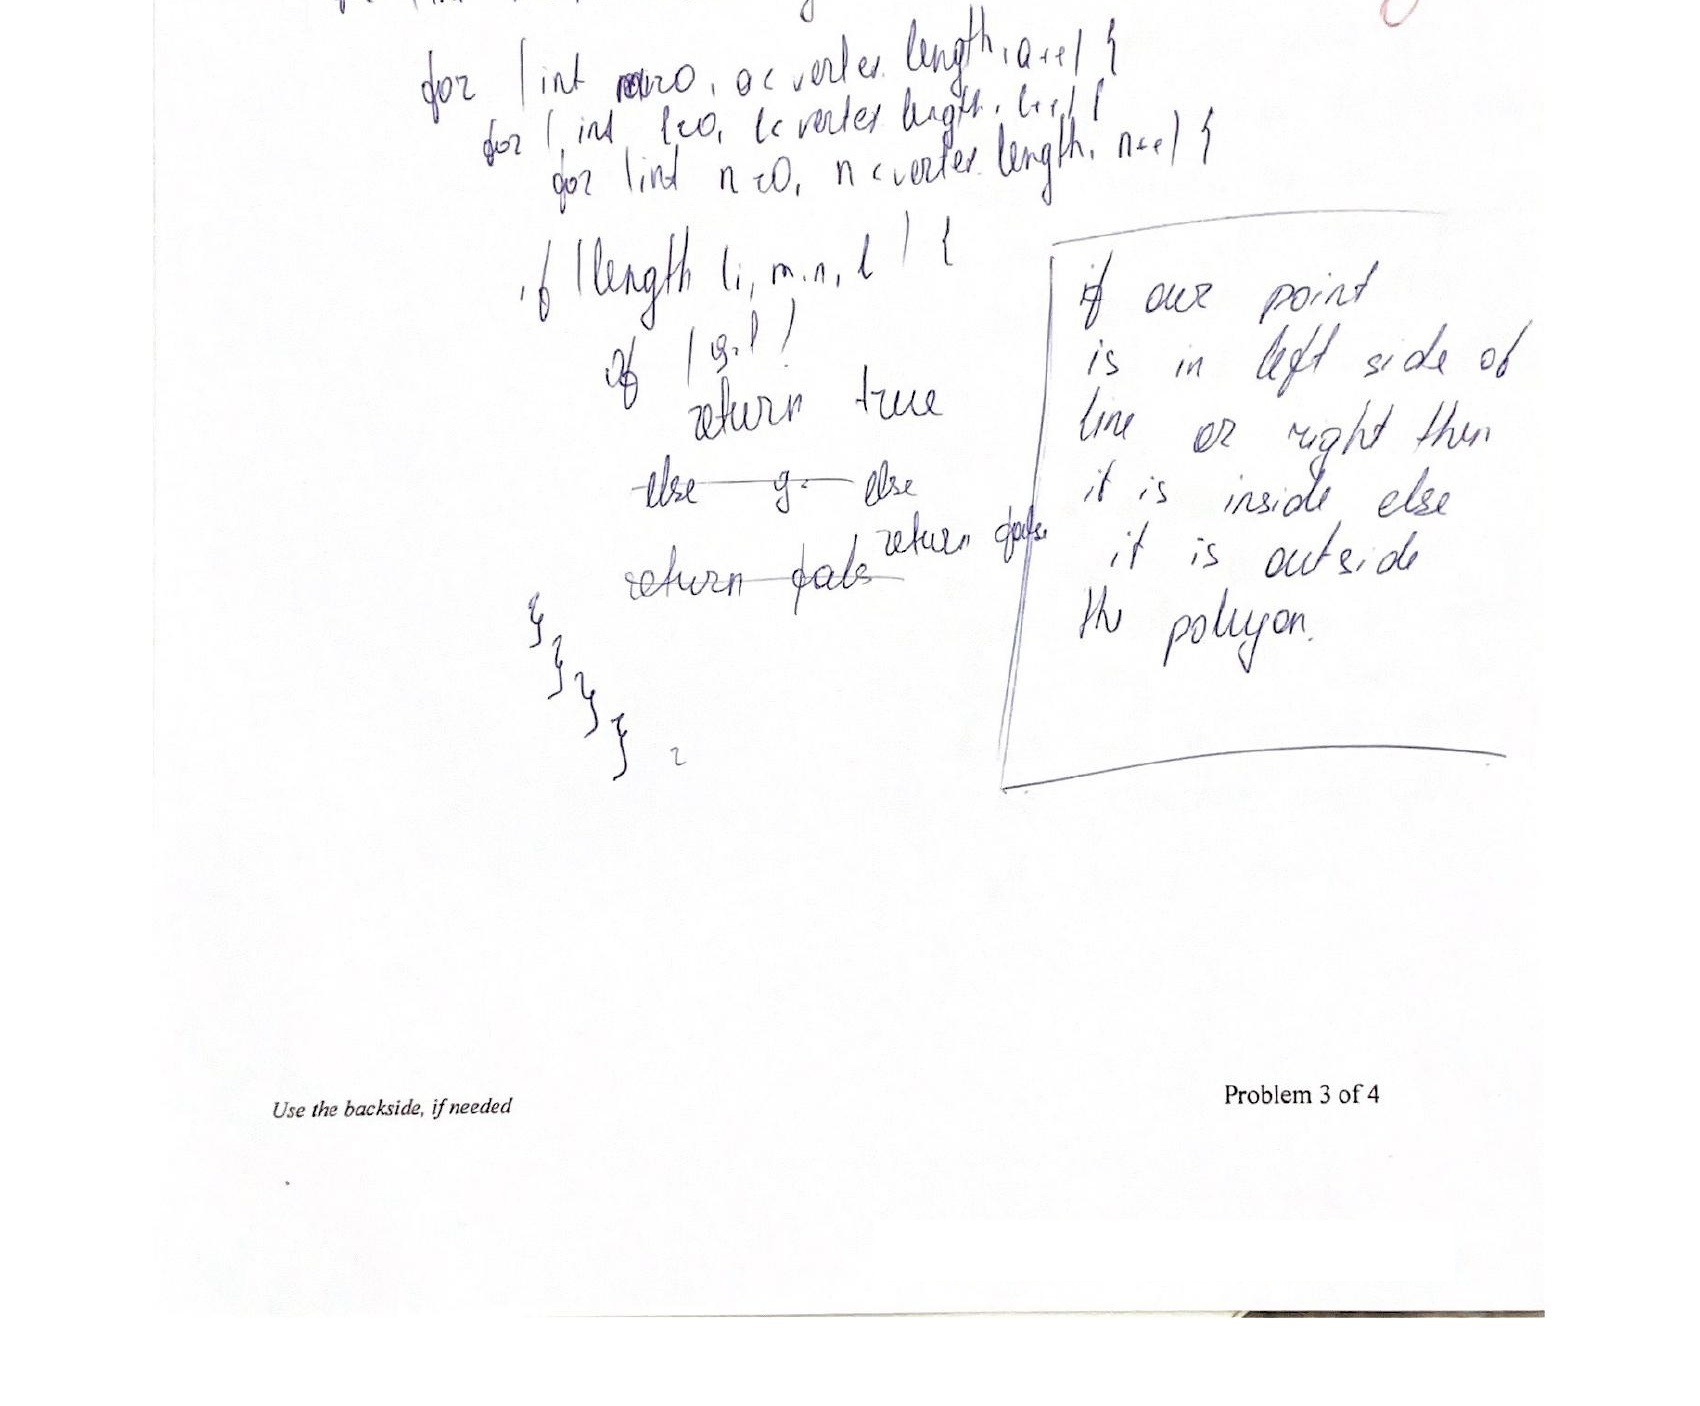 for (int m=0, a< vertex. length, a++) {
for ( int l=0, l< vertex length, l++) {
for (int n=0, n < vertex. length, n++) {
if (length (i, m, n, l ) {
if
return true
else g. else
return false
return fals
}
}
}
}
if our point
is in left side of
line or right then
it is inside else
it is outside
the polygon.
Use the backside, if needed
Problem 3 of 4